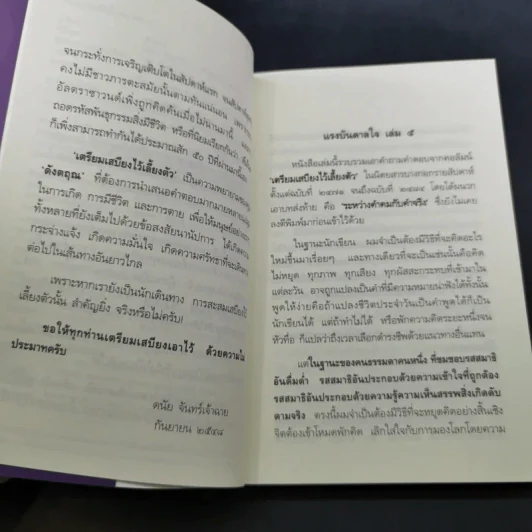 จนกระทั่งการเจริญเติบโตในสัปดาห์แรก
คงไม่มีชาวภารตะสมัยนั้นตามทันแน่นอน
อัลตราซาวนด์เพิ่งถูกคิดค้นเมื่อไม่นานมานี้
ถอดรหัสพันธุกรรมสิ่งมีชีวิต หรือที่นิยมเรียกกันว่า
ก็เพิ่งสามารถทำกันได้ประมาณสัก ๕๐ ปีที่ผ่านมานี้เอง
'เตรียมเสบียงไว้เลี้ยงตัว' เป็นความพยายามของ
'ดังตฤณ' ที่ต้องการนำเสนอคำตอบมากมายหลาย
ในการเกิด การมีชีวิต และการตาย เพื่อให้มนุษย์
ทั้งหลายที่ยังเต็มไปด้วยข้อสงสัยนานัปการ ได้เกิดความ
กระจ่างแจ้ง เกิดความมั่นใจ เกิดความศรัทธาที่จะเดินทาง
ต่อไปในเส้นทางอันยาวไกล
เพราะหากเรายังเป็นนักเดินทาง การสะสมเสบียงไว้
เลี้ยงตัวนั้น สำคัญยิ่ง จริงหรือไม่ครับ!
ขอให้ทุกท่านเตรียมเสบียงเอาไว้ ด้วยความไม่
ประมาทครับ
ดนัย จันทร์เจ้าฉาย
กันยายน ๒๕๔๘
แรงบันดาลใจ เล่ม ๕
หนังสือเล่มนี้รวบรวมเอาคำถามคำตอบจากคอลัมน์
'เตรียมเสบียงไว้เลี้ยงตัว' ในนิตยสารบางกอกรายสัปดาห์
ตั้งแต่ฉบับที่ จนถึงฉบับที่ โดยได้ผนวก
เอาบทส่งท้าย คือ 'ระหว่างคำคมกับคำจริง' ซึ่งยังไม่เคย
ลงตีพิมพ์มาก่อนเข้าไว้ด้วย
ในฐานะนักเขียน ผมจำเป็นต้องมีวิธีที่จะคิดอะไร
ใหม่ขึ้นมาเรื่อยๆ และทางเดียวที่จะเป็นเช่นนั้นคือคิด
ไม่หยุด ทุกภาพ ทุกเสียง ทุกผัสสะกระทบที่เข้ามาใน
แต่ละวัน อาจถูกแปลงเป็นคำที่มีความหมายน่าฟังได้ทั้งนั้น
พูดให้ง่ายคือถ้าแปลงชีวิตประจำวันเป็นคำพูดได้ก็เป็น
นักเขียนได้ แต่ถ้าทำไม่ได้ หรือพักความคิดระยะหนึ่งจน
หัวทื่อ ก็แปลว่าถึงเวลาเลือกดำรงชีพด้วยแนวทางอื่นแทน
แต่ในฐานะของคนธรรมดาคนหนึ่ง ที่ชมชอบรสสมาธิ
อันดื่มด่ำ รสสมาธิอันประกอบด้วยความเข้าใจที่ถูกต้อง
รสสมาธิอันประกอบด้วยความรู้ความเห็นสรรพสิ่งเกิดดับ
ตามจริง ตรงนี้ผมจำเป็นต้องมีวิธีที่จะหยุดคิดอย่างสิ้นเชิง
จิตต้องเข้าโหมดพักคิด เลิกใส่ใจกับการมองโลกโดยความ